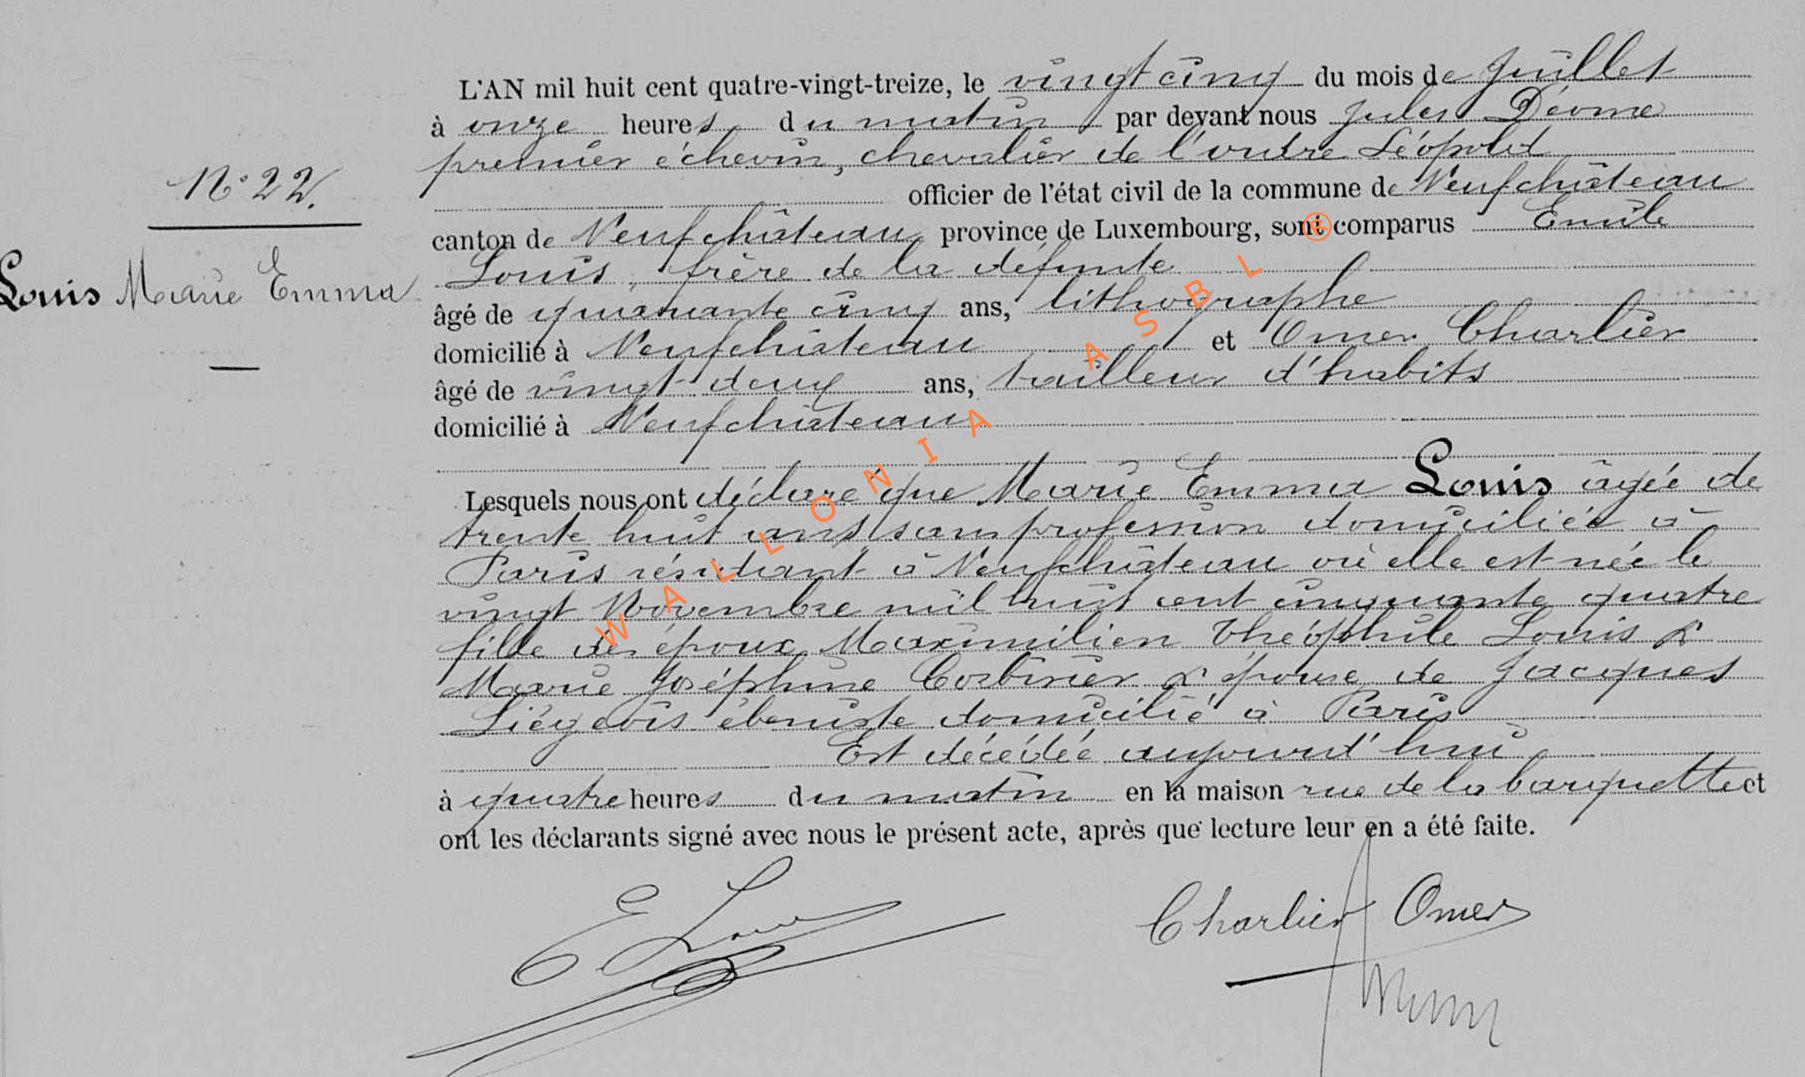 L'AN mil huit cent quatre-vingt-treize, le vingt cinq du mois de Juillet
à onze heures du matin par devant nous Jules Déome
premier échevin, chevalier de l'ordre Léopold
officier de l'état civil de la commune de Neufchâteau
canton de Neufchâteau province de Luxembourg, sont comparus Emile
Louis, frère de la défunte
âgé de quarante cinq ans, lithographe
domicilié à Neufchâteau et Omer Charlier
âgé de vingt-deux ans, tailleur d'habits
domicilié à Neufchâteau
N° 22.
Louis Marie Emma
Lesquels nous ont déclaré que Marie Emma Louis âgée de
trente huit ans, sans profession domiciliée à
Paris résidant à Neufchâteau où elle est née le
vingt Novembre mil huit cent cinquante quatre
fille des époux Maximilien Théophile Louis &
Marie Joséphine Corbinier & épouse de Jacques
Liégeois ébeniste domicilié à Paris
Est décédée aujourd'hui
à quatre heures du matin en la maison rue de la barquette et
ont les déclarants signé avec nous le présent acte, après que lecture leur en a été faite.
E. Louis
Charlier Omer
WALLONIA ASBL ®